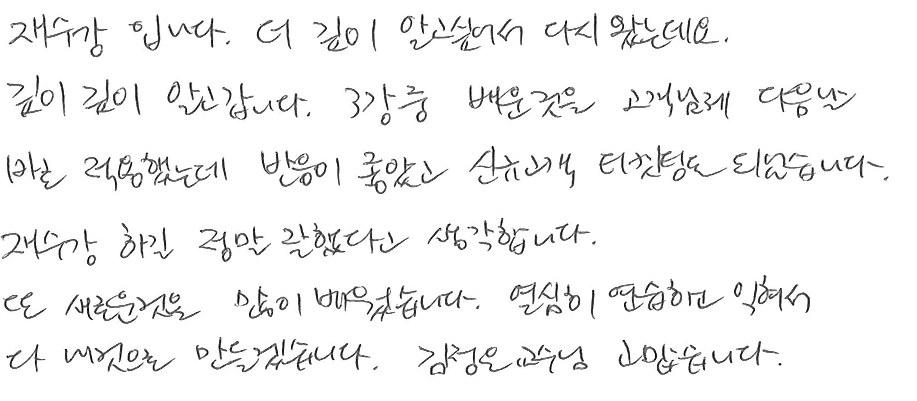 재수강 입니다. 더 깊이 알고싶어서 다시 왔는데요.
깊이 깊이 알고갑니다. 3강중 배운것을 고객님께 다음날
바로 적용했는데 반응이 좋았고 신규고객 티켓팅도 되었습니다.
재수강 하길 정말 잘했다고 생각합니다.
또 새로운것을 많이 배우겠습니다. 열심히 연습하고 익혀서
다 내것으로 만들겠습니다. 김정은교수님 고맙습니다.